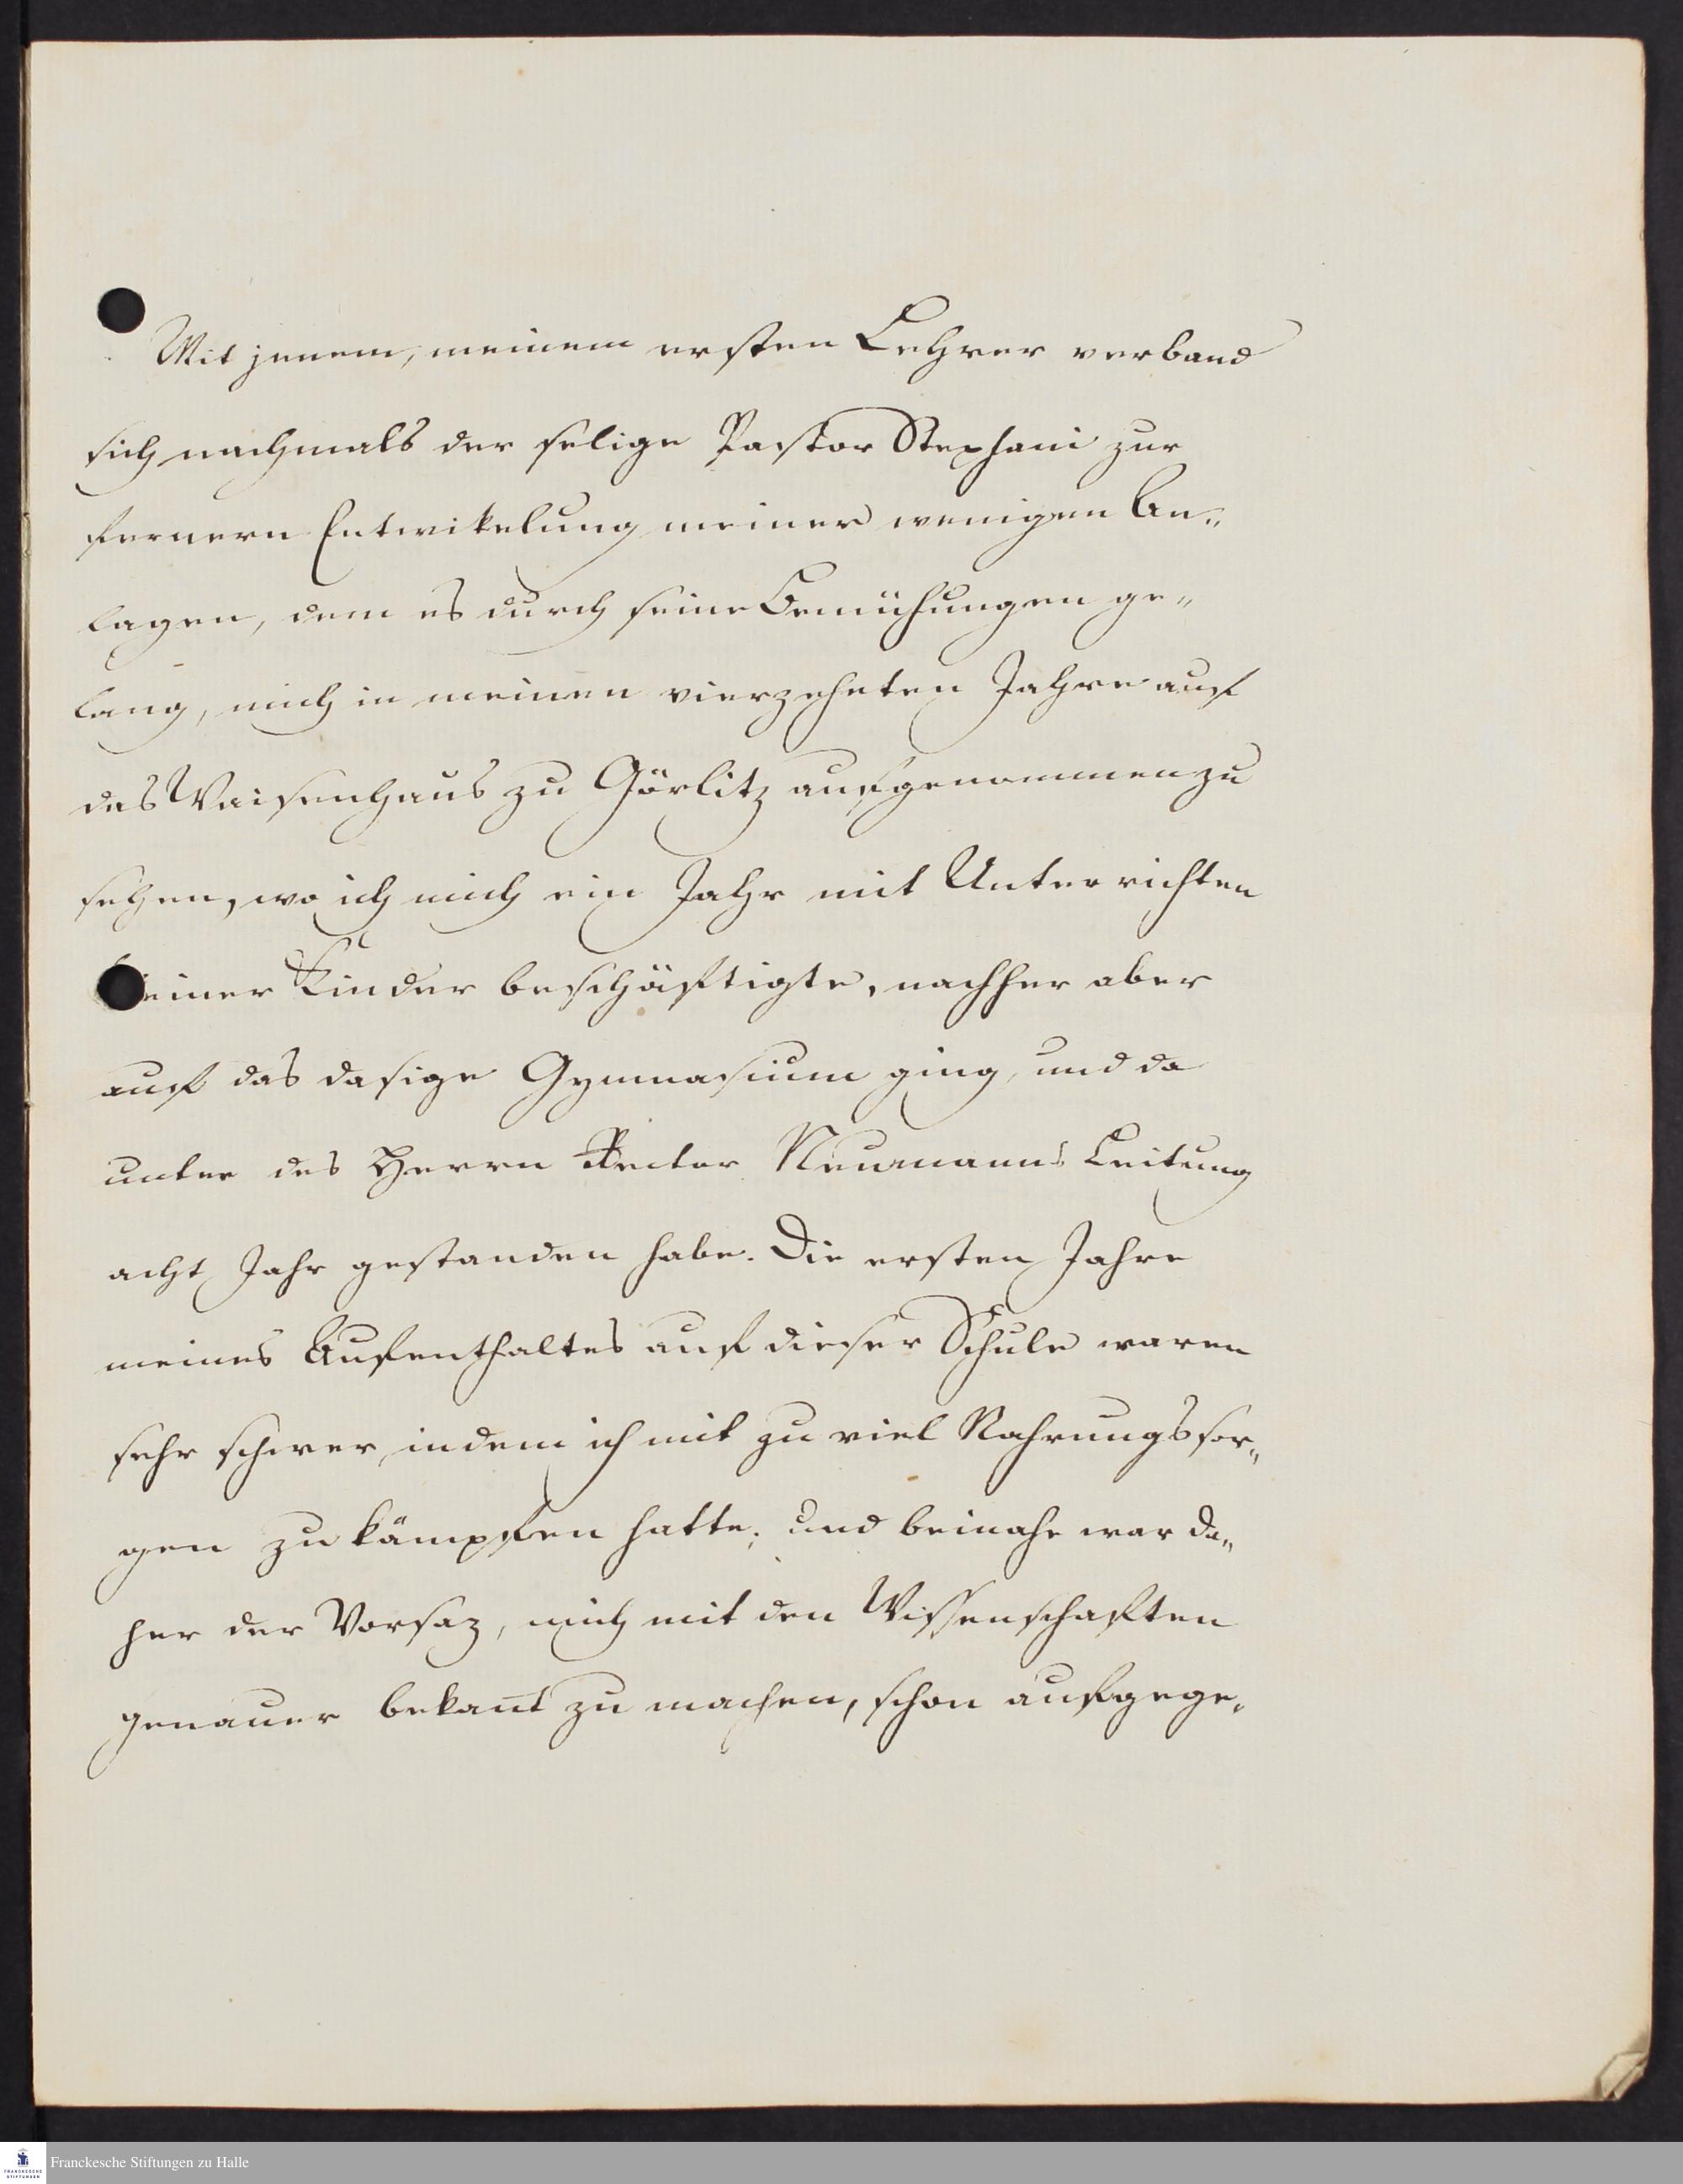 Mit jenem, meinem ersten Lehrer verband
sich nachmals der selige Pastor Stephani zur
fernern Entwikelung meiner wenigen An„
lagen, dem es durch seine Bemühungen ge„
lang, mich in meinen vierzehnten Jahre auf
das Waisenhaus zu Görlitz aufgenommen zu
sehen, wo ich mich ein Jahr mit Unterrichten
einer Kinder beschäftigte, nachher aber
auf das dasige Gymnasium ging, und da
unter des Herrn Rector Neumanns Leitung
acht Jahr gestanden habe. Die ersten Jahre
meines Aufenthaltes auf dieser Schule waren
sehr schwer, indem ich mit zu viel Nahrungssor„
gen zu kämpfen hatte; und beinahe war da„
her der Vorsaz, mich mit den Wissenschaften
genauer bekant zu machen, schon aufgege„
Franckesche Stiftungen zu Halle
FRANCKESCHE
STIFTUNGEN